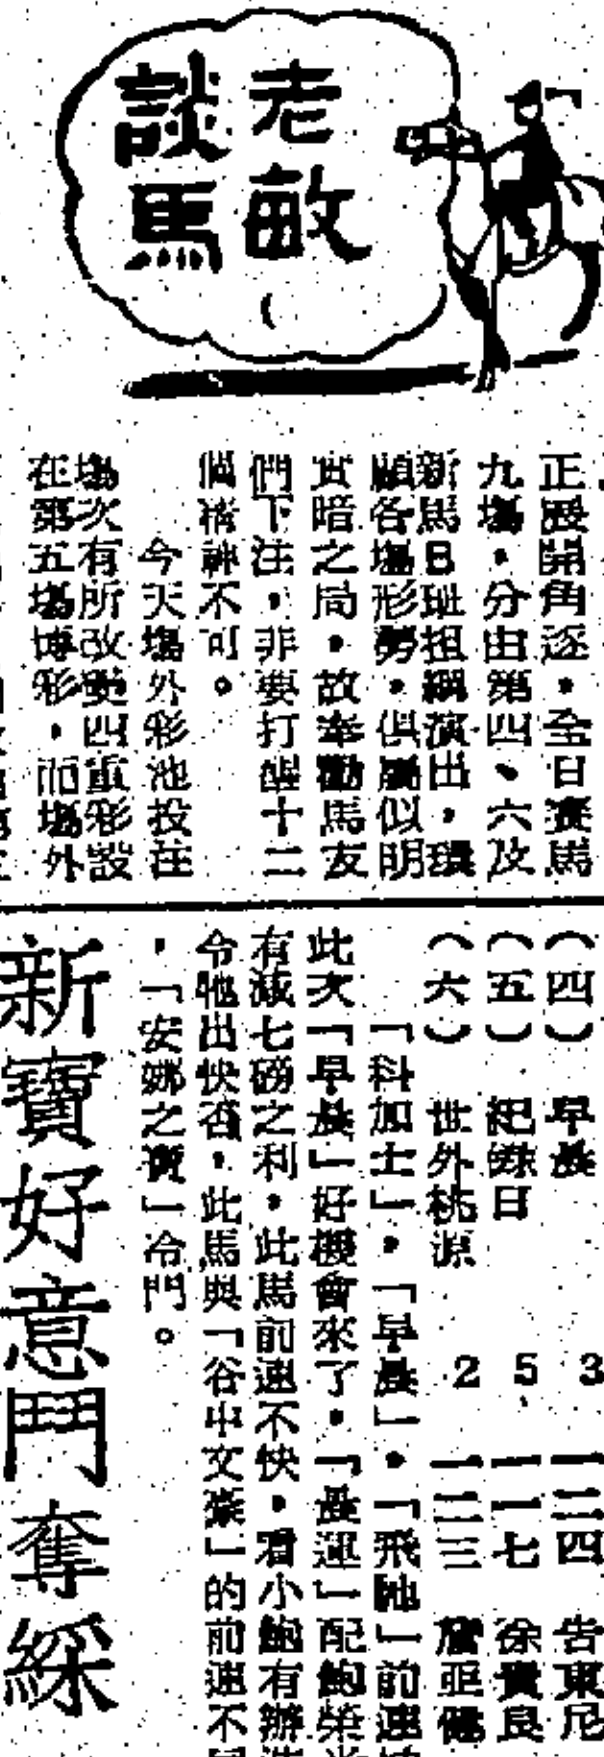 老敏
談馬
正展開角逐，全日賽馬
九場，分由第四、六及
新馬B班担綱演出，環
顧各場形勢，俱屬似明
實暗之局，故奉勸馬友
們下注，非要打醒十二
個精神不可。
今天場外彩池投注
場次有所改變四重彩設
在第五場博彩，而場外
（四） 早晨 3 一二四 告東尼
（五） 紀綠日 5 一一七 徐寶良
（六） 世外桃源 2 一二三 詹亜健
「科加士」，「早晨」，「飛馳」前速
此次「早晨」好機會來了。「長運」配鮑榮
有減七磅之利，此馬前速不快，看小鮑有辦
令牠出快否，此馬與「谷中文豪」的前速不
，「安娜之寶」冷門。
新寶好意鬥奪綵